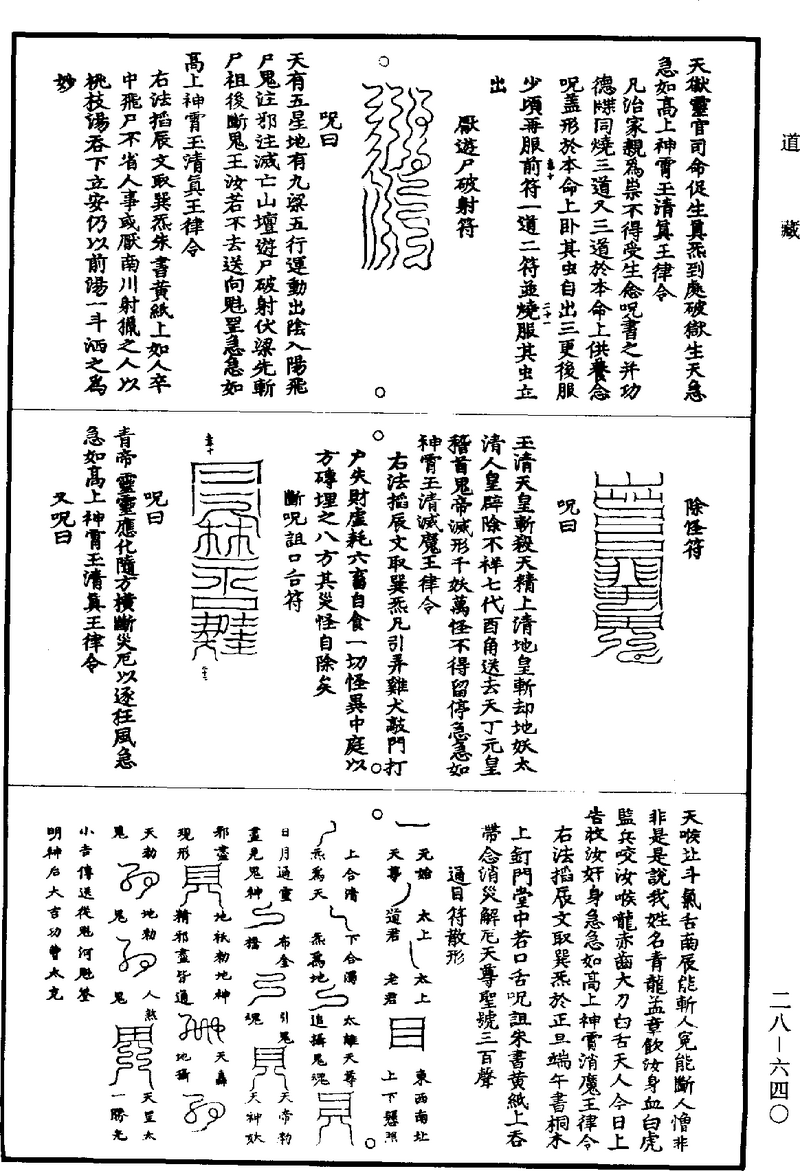 道藏
天獄靈官司命促生真炁到處破獄生天急
急如高上神霄玉清真王律令
凡治家親為祟不得受生念呪書之并功
德牒同燒三道又三道於本命上供養念
呪蓋形於本命上卧其虫自出三更後服
少頃再服前符一道二符並燒服其虫立
出
厭遊尸破射符
呪曰
天有五星地有九梁五行運動出陰入陽飛
尸鬼注邪注滅亡山壇遊尸破射伏梁先斬
尸祖後斷鬼王汝若不去送向魁罡急急如
高上神霄玉清真王律令
右法掐辰文取巽炁朱書黃紙上如人卒
中飛尸不省人事或厭南川射獵之人以
桃枝湯吞下立安仍以前湯一斗洒之為
妙
除怪符
呪曰
玉清天皇斬殺天精上清地皇斬却地妖太
清人皇辟除不祥七代百角送去天丁元皇
稽首鬼帝滅形千妖萬怪不得留停急急如
神霄玉清滅魔王律令
右法掐辰文取巽炁凡引弄雞犬敲門打
戶失財虛耗六畜自食一切怪異中庭以
方磚埋之八方其災怪自除矣
斷呪詛口舌符
呪曰
青帝靈靈應化隨方橫斷災厄以逐狂風急
急如高上神霄玉清真王律令
又呪曰
天喉让斗氣舌南辰能斬人冤能斷人憎非
非是是說我姓名青龍孟章飲汝身血白虎
監兵咬汝喉嚨赤齒大刀白舌天人今日上
告牧汝奸身急急如高上神霄消魔王律令
右法掐辰文取巽炁於正旦端午書桐木
上釘門堂中若口舌呪詛朱書黃紙上吞
帶念消災解厄天尊聖號三百聲
通目符散形
元始
天尊
太上
道君
太上
老君
東西南北
上下懸照
上合清
炁為天
下合濁
炁為地
太離天尊
追攝鬼魂
日月通靈
盡見鬼神
布金
橋
引鬼
魂
天帝勑
天神妖
邪盡
現形
地祇勑地神
精邪盡皆通
天轟
地攝
天勑
鬼
地勑
鬼
人煞
鬼
天罡太
一勝先
小吉傳送從魁河魁登
明神后大吉功曹太充
二八—六四〇